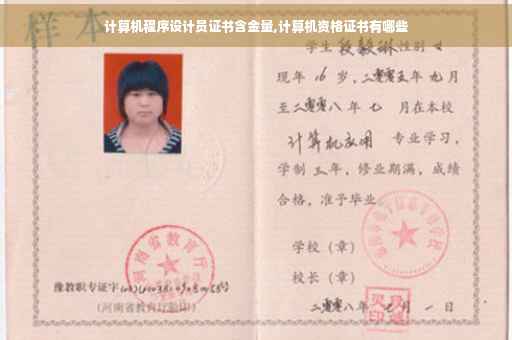 计算机程序设计员证书含金量,计算机资格证书有哪些
样本
学生段毅琳性别女
现年16岁,二零零五年九月
至二零零八年七 月在本校
计算机应用 专业学习,
学制三年,修业期满,成绩
合格,准予毕业。
学校(章)
校长(章)
二零零八年七月一日
河南省教育厅
豫教职专证字
(河南省教育厅验印)